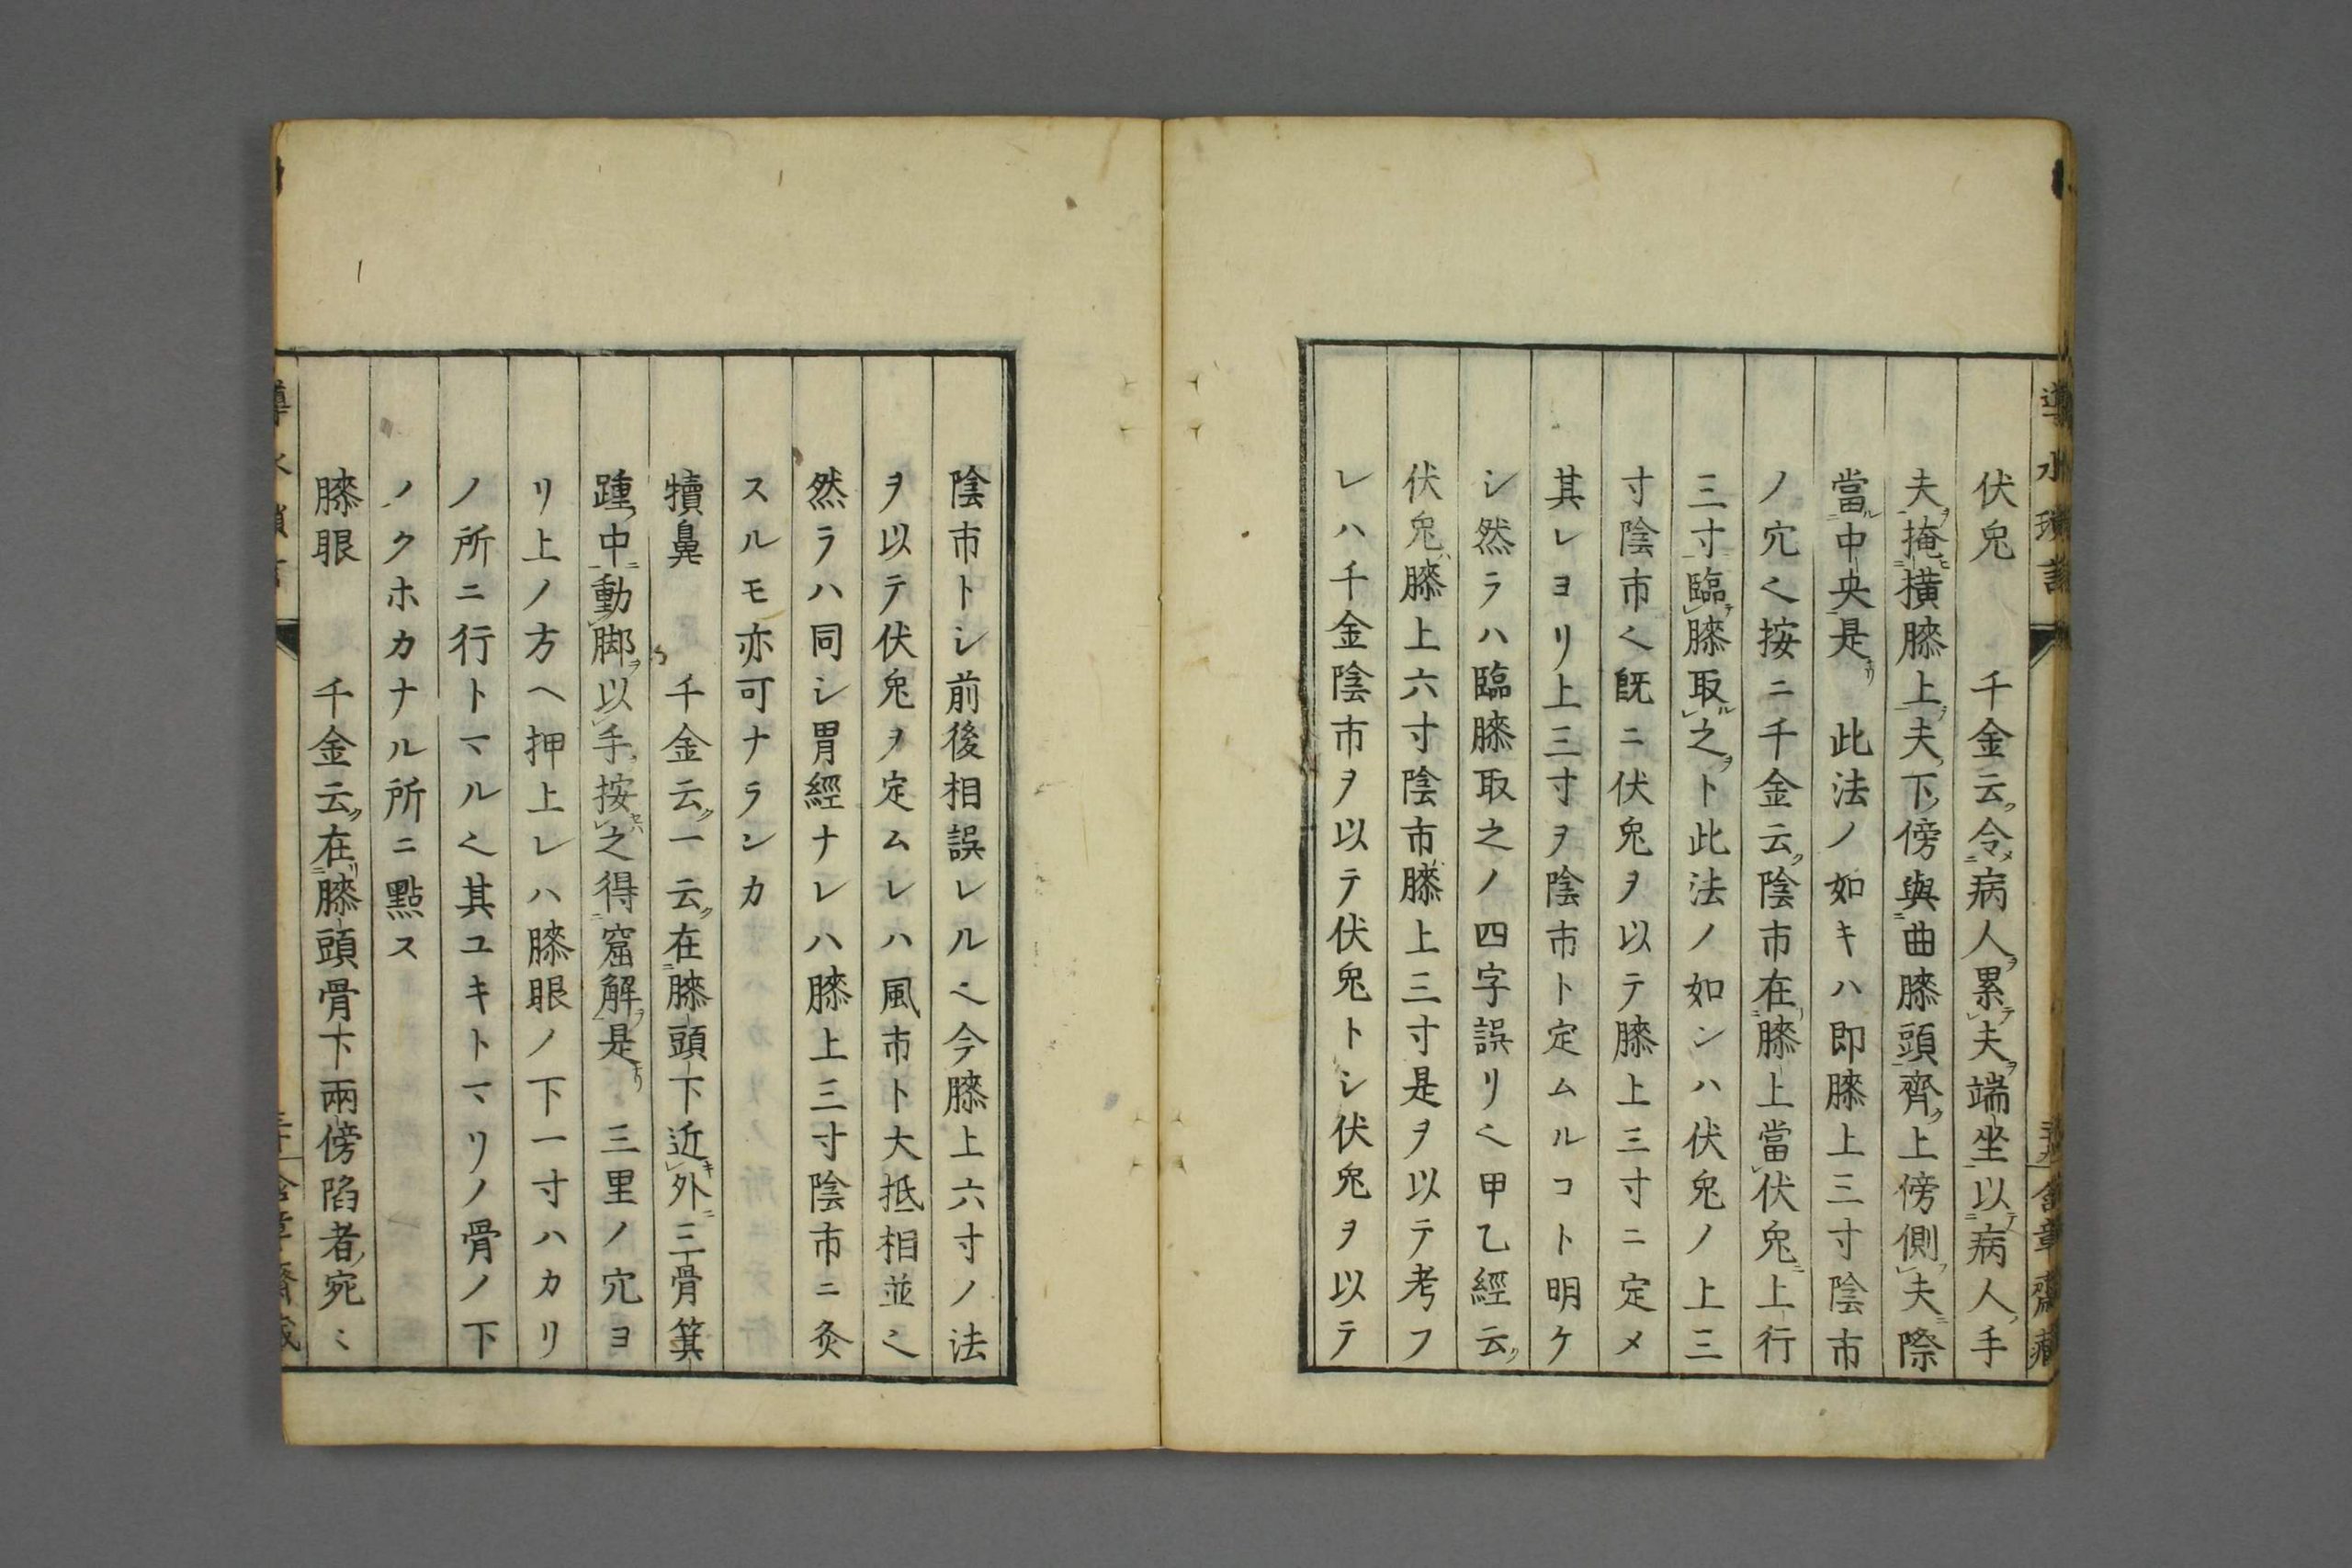 伏兎　千金云令病人累夫端坐以病人手
夫掩横膝上夫下傍與曲膝頭齊上傍側夫際
當中央是　此法ノ如キハ即膝上三寸陰市
ノ穴く按ニ千金云陰市在膝上當伏兎上行
三寸臨膝取之ト此法ノ如ンハ伏兎ノ上三
寸陰市く既ニ伏兎ヲ以テ膝上三寸ニ定メ
其レヨリ上三寸ヲ陰市ト定ムルコト明ケ
シ然ラハ臨膝取之ノ四字誤リく甲乙經云
伏兎膝上六寸陰市膝上三寸是ヲ以テ考フ
レハ千金陰市ヲ以テ伏兎トシ伏兎ヲ以テ
陰市トシ前後相誤レルく今膝上六寸ノ法
ヲ以テ伏兎ヲ定ムレハ風市ト大抵相並く
然ラハ同シ胃經ナレハ膝上三寸陰市ニ灸
スルモ亦可ナランカ
犢鼻　千金云一云在膝頭下近外三骨箕
踵中動脚以手按之得窟解是　三里ノ穴ヨ
リ上ノ方ヘ押上レハ膝眼ノ下一寸ハカリ
ノ所ニ行トマルく其ユキトマリノ骨ノ下
ノクホカナル所ニ點ス
膝眼　千金云在膝頭骨下兩傍陷者宛ミ